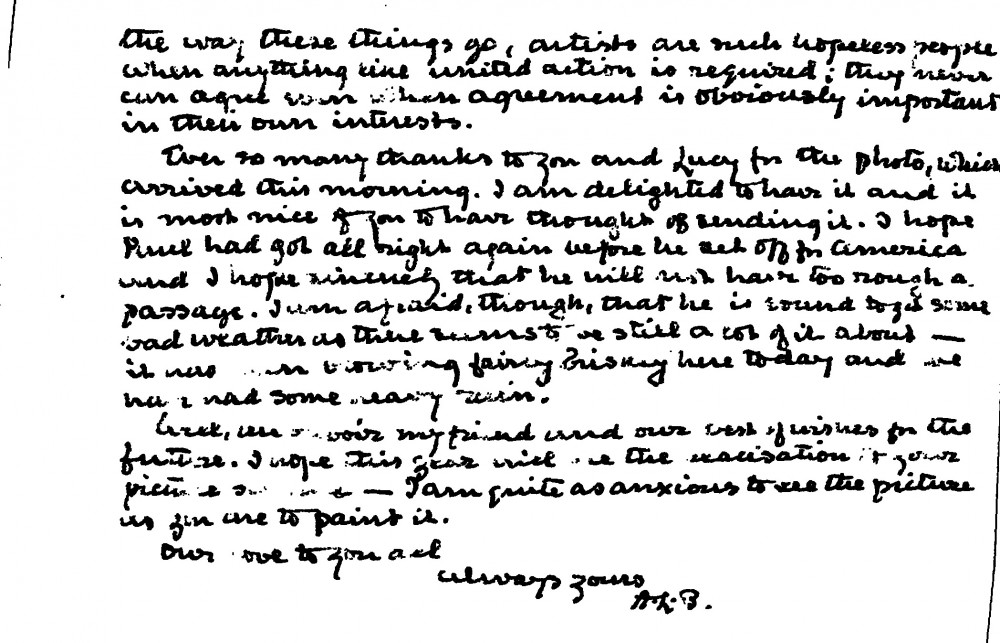 the way these things go, artists are such hopeless people
when anything like united action is required; they never
can agree even when agreement is obviously important
in their own interests.
Ever so many thanks to you and Lucy for the photo, which
arrived this morning. I am delighted to have it and it
is most nice of you to have thought of sending it. I hope
Paul had got all right again before he set off for America
and I hope sincerely that he will not have too rough a
passage. I am afraid, though, that he is bound to get some
bad weather as there seems to be still a lot of it about —
it has been blowing fairly briskly here today and we
have had some heavy rain.
Well, au revoir my friend and our best of wishes for the
future. I hope this year will see the realisation of your
picture — I am quite as anxious to see the picture
as you are to paint it.
Our love to you all
Always yours
A.L.B.